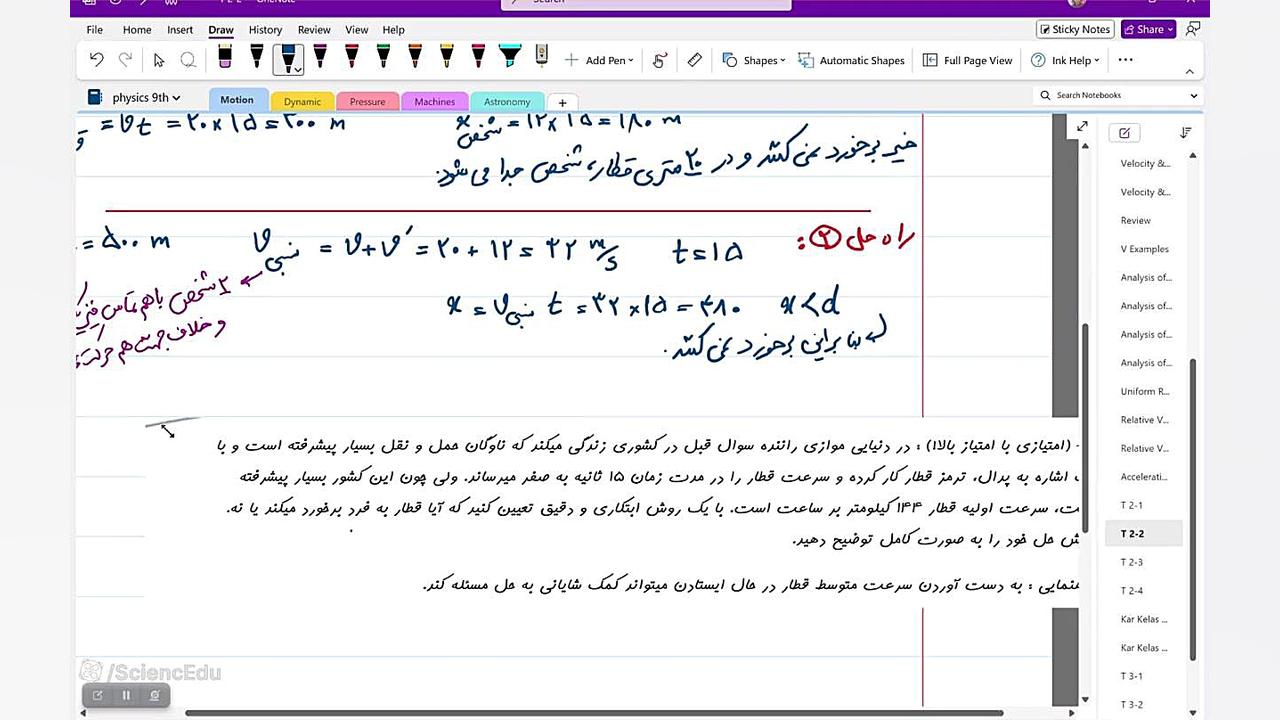 Search
File Home Insert Draw History Review View Help
Sticky Notes
Share
Add Pen
Shapes
Automatic Shapes
Full Page View
Ink Help
physics 9th
Motion
Dynamic
Pressure
Machines
Astronomy
+
Search Notebooks
= Vt = ۲۰×۱۵ = ۳۰۰ m
x شخص = ۱۲×۱۵ = ۱۸۰ m
خیر برخورد نمی کنند و در ۲۰ متری قطار، شخص جدا می شود.
راه حل ۲:
t = ۱۵
V نسبی = V + V′ = ۲۰ + ۱۲ = ۳۲ m/s
= ۵۰۰ m
۲ شخص باهم تماس
و خلاف جهت هم
x = V نسبی t = ۳۲×۱۵ = ۴۸۰
x < d
بنابراین برخورد نمی کنند.
- (امتیازی با امتیاز بالا!) : در دنیایی موازی راننده سوال قبل در کشوری زندگی میکند که ناوگان حمل و نقل بسیار پیشرفته است و با
اشاره به پدال، ترمز قطار کار کرده و سرعت قطار را در مدت زمان ۱۵ ثانیه به صفر میرساند. ولی چون این کشور بسیار پیشرفته
سرعت اولیه قطار ۱۴۴ کیلومتر بر ساعت است. با یک روش ابتکاری و دقیق تعیین کنید که آیا قطار به فرد برخورد میکند یا نه.
حل خود را به صورت کامل توضیح دهید.
: به دست آوردن سرعت متوسط قطار در حال ایستادن میتواند کمک شایانی به حل مسئله کند.
Velocity &...
Velocity &...
Review
V Examples
Analysis of...
Analysis of...
Analysis of...
Analysis of...
Uniform R...
Relative V...
Relative V...
Accelerati...
T 2-1
T 2-2
T 2-3
T 2-4
Kar Kelas ...
Kar Kelas ...
T 3-1
T 3-2
/SciencEdu